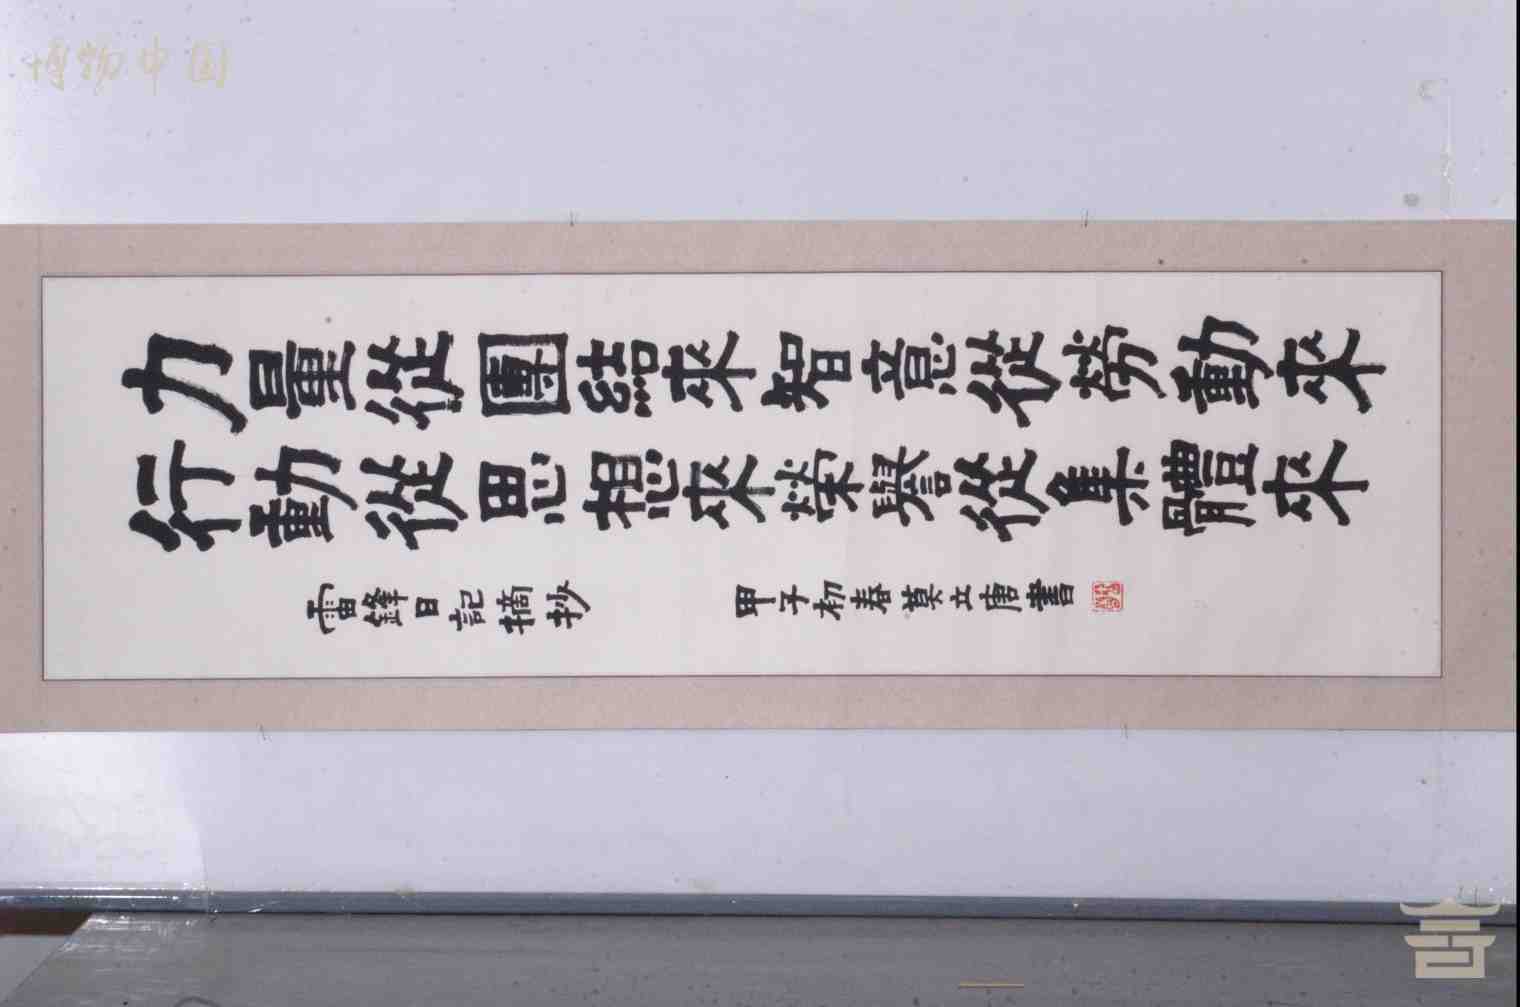 博物中国
力量從團結來智意從勞動來
行動從思想來榮譽從集體來
雷鋒日記摘抄 甲子初春莫立唐書